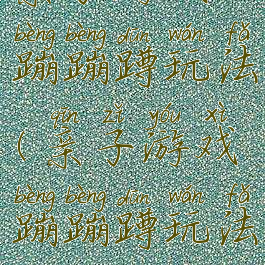 bèng bèng dūn wán fǎ
蹦蹦蹲玩法
qīn zǐ yóu xì
(亲子游戏
bèng bèng dūn wán fǎ
蹦蹦蹲玩法